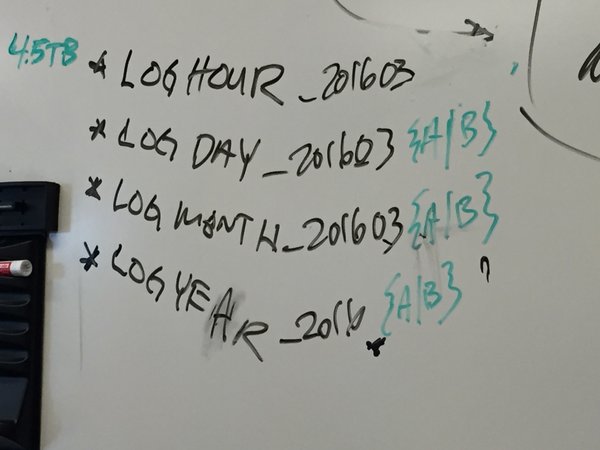 4.5TB * LOGHOUR_201603
* LOG DAY_201603 {A|B}
* LOG MONTH_201603 {A|B}
* LOGYEAR_2016 {A|B}